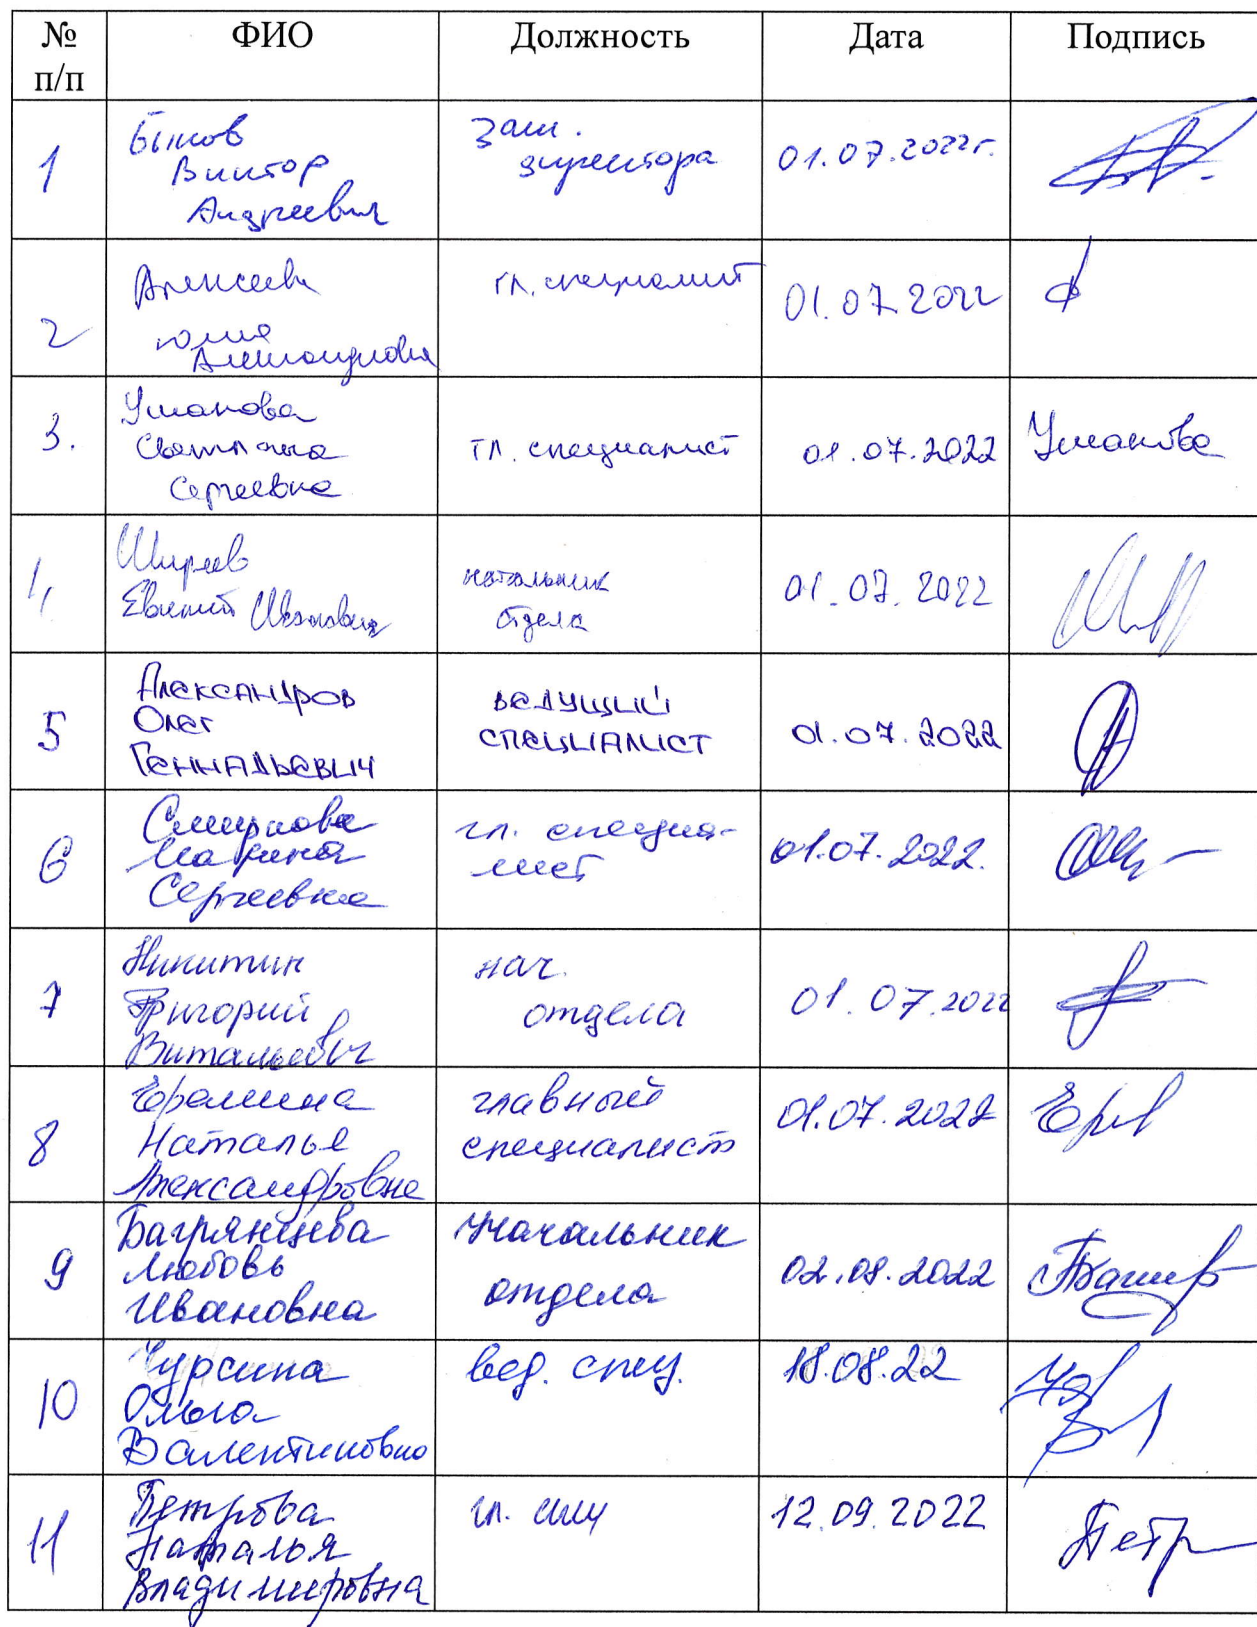 № п/п ФИО Должность Дата Подпись
1 Быков Виктор Андреевич зам. директора 01.07.2022г.
2 Алексеева Юлия Александровна гл. специалист 01.07.2022
3. Ушакова Светлана Сергеевна гл. специалист 01.07.2022 Ушакова
4 Ширяев Евгений Иванович начальник отдела 01.07.2022
5 Александров Олег Геннадьевич ведущий специалист 01.07.2022
6 Смирнова Марина Сергеевна гл. специа-лист 01.07.2022.
7 Никитин Григорий Витальевич нач. отдела 01.07.2022
8 Еремина Наталье Александровне главный специалист 01.07.2022 Ере
9 Багрянцева Любовь Ивановна начальник отдела 02.08.2022
10 Чурсина Ольга Валентиновна вед. спец. 18.08.22
11 Петрова Наталья Владимировна гл. спец 12.09.2022 Петр